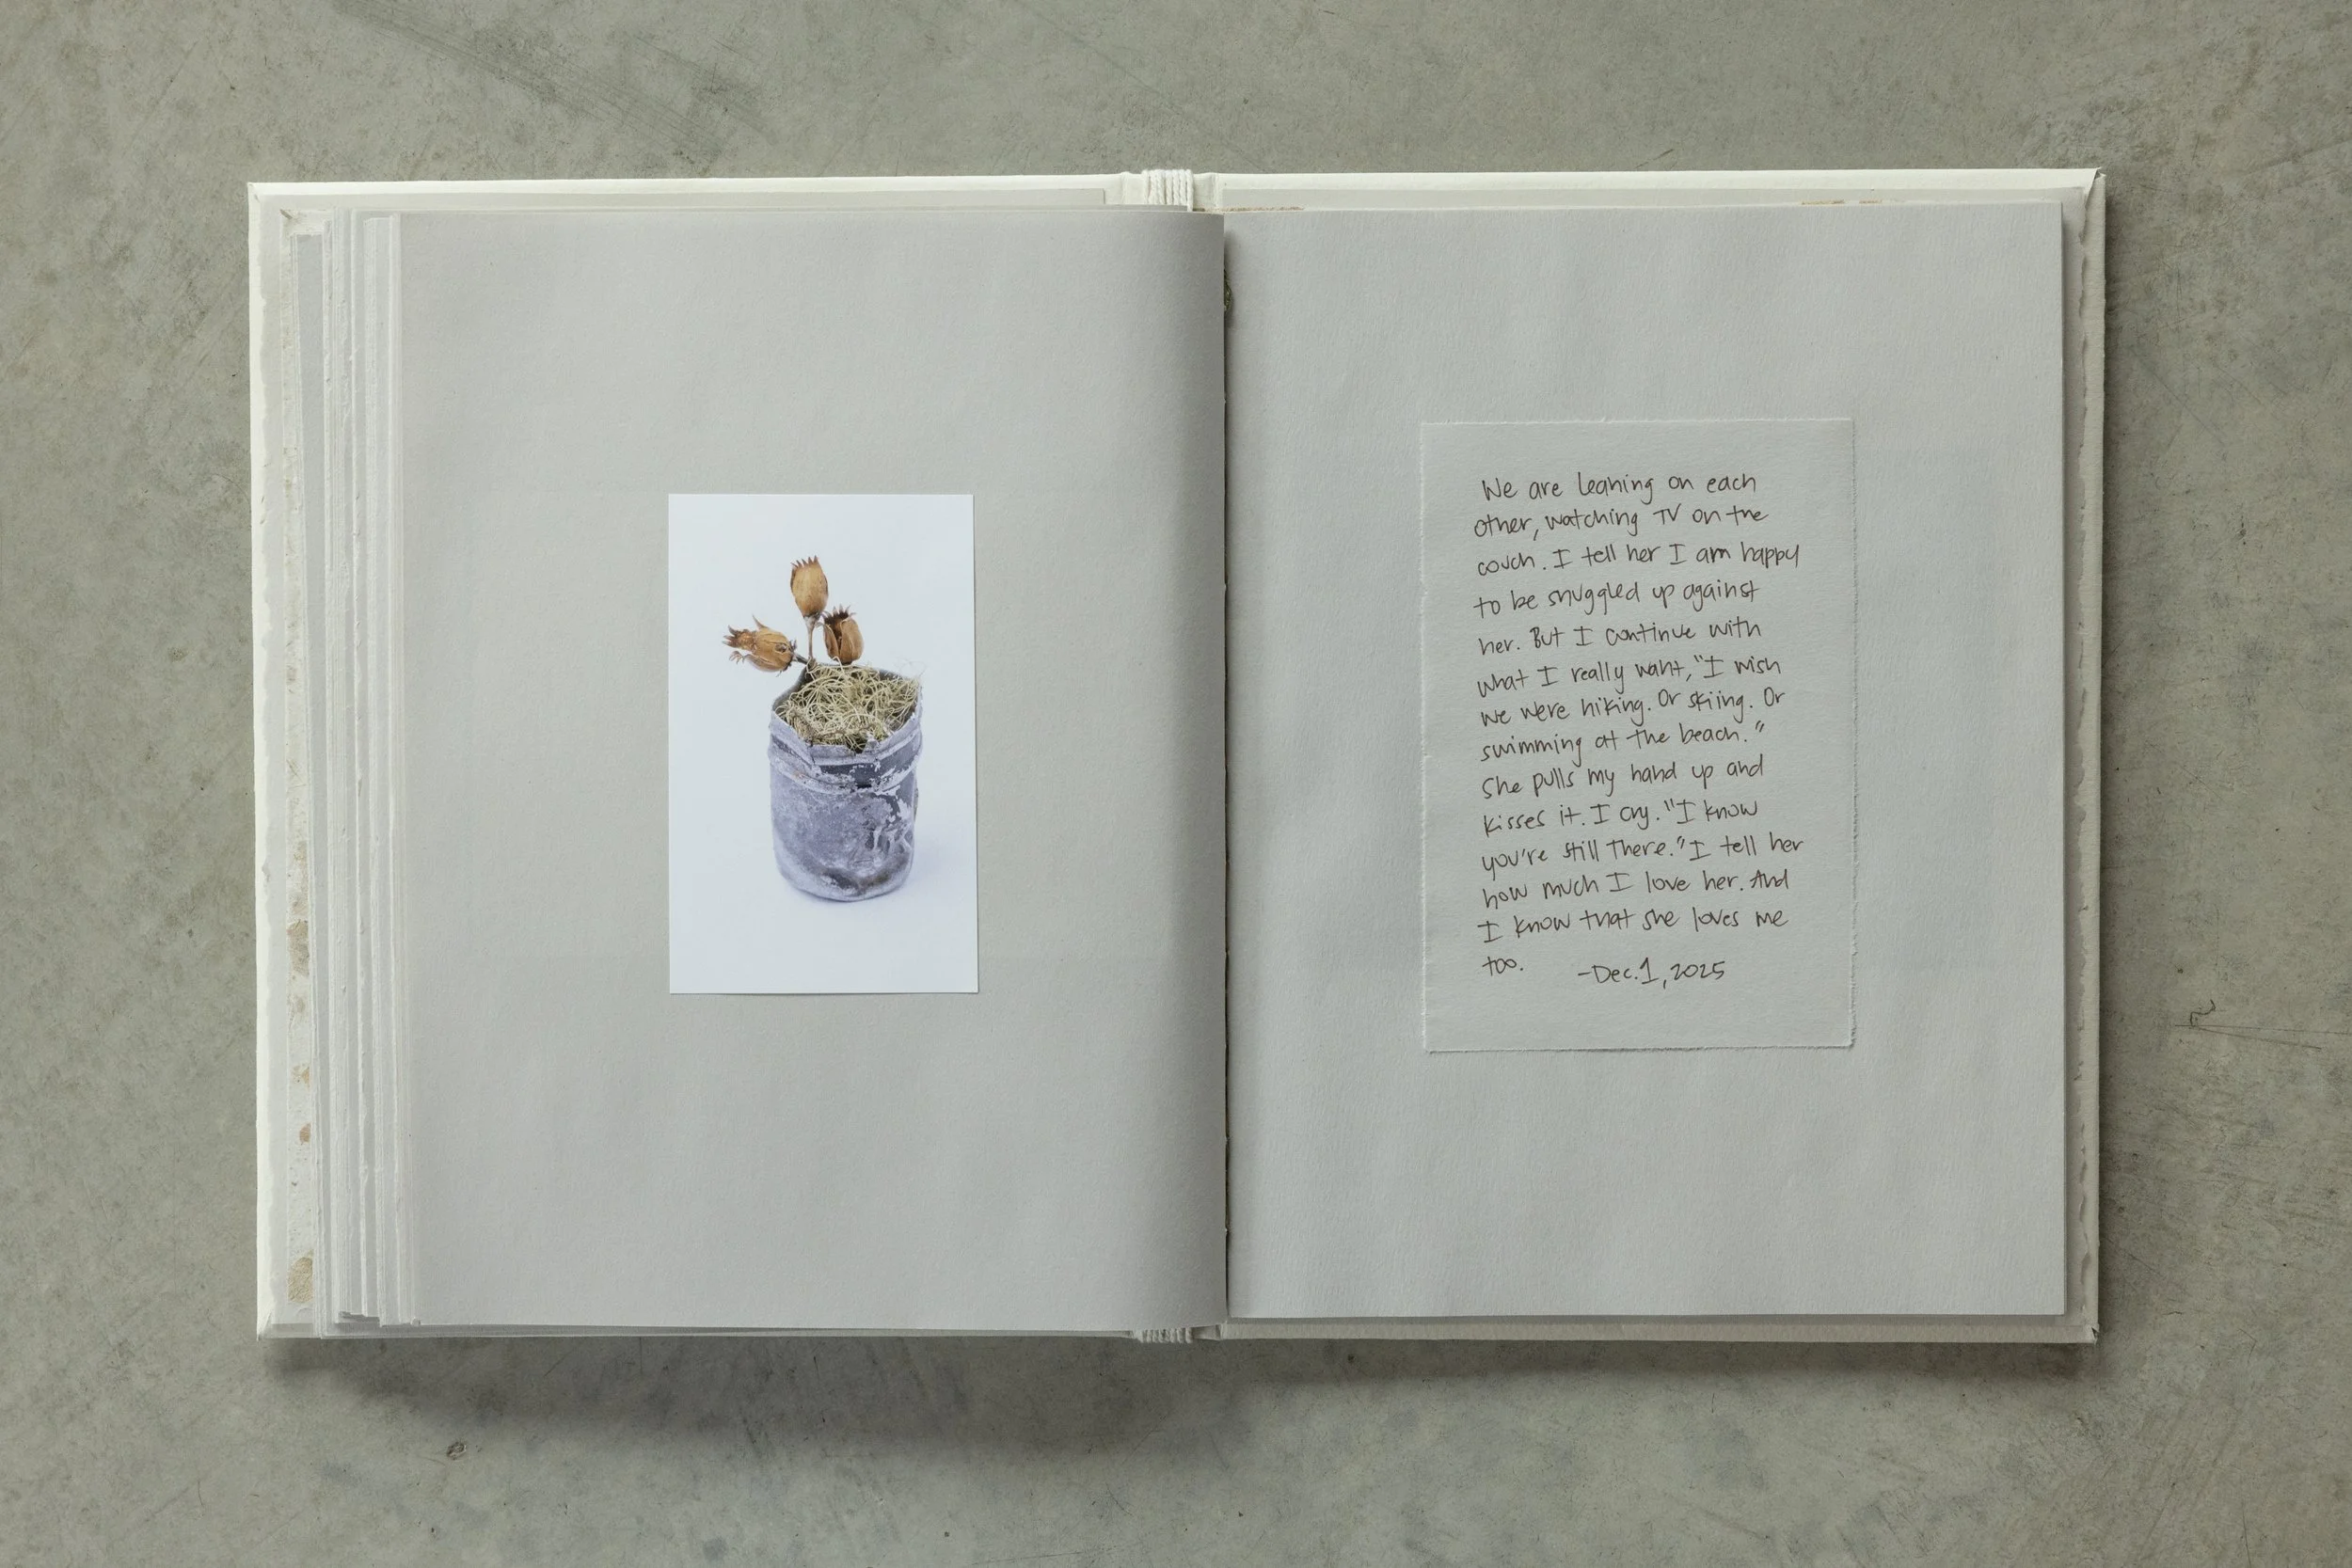 We are leaning on each
other, watching TV on the
couch. I tell her I am happy
to be snuggled up against
her. But I continue with
what I really want, "I wish
we were hiking. Or skiing. Or
swimming at the beach."
She pulls my hand up and
kisses it. I cry. "I know
you're still there." I tell her
how much I love her. And
I know that she loves me
too. -Dec. 1, 2025